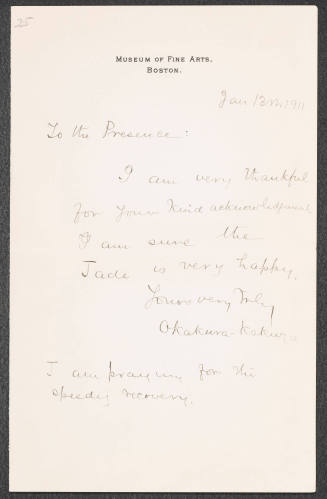 25
MUSEUM OF FINE ARTS.
BOSTON.
Jan 13th 1911
To the Presence:
I am very thankful
for your Kind acknowledgment.
I am sure the
Jade is very happy.
Yours very truly
Okakura-Kakuzo
I am praying for the
speedy recovery.